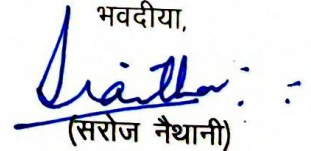 भवदीया,
(सरोज नैथानी)